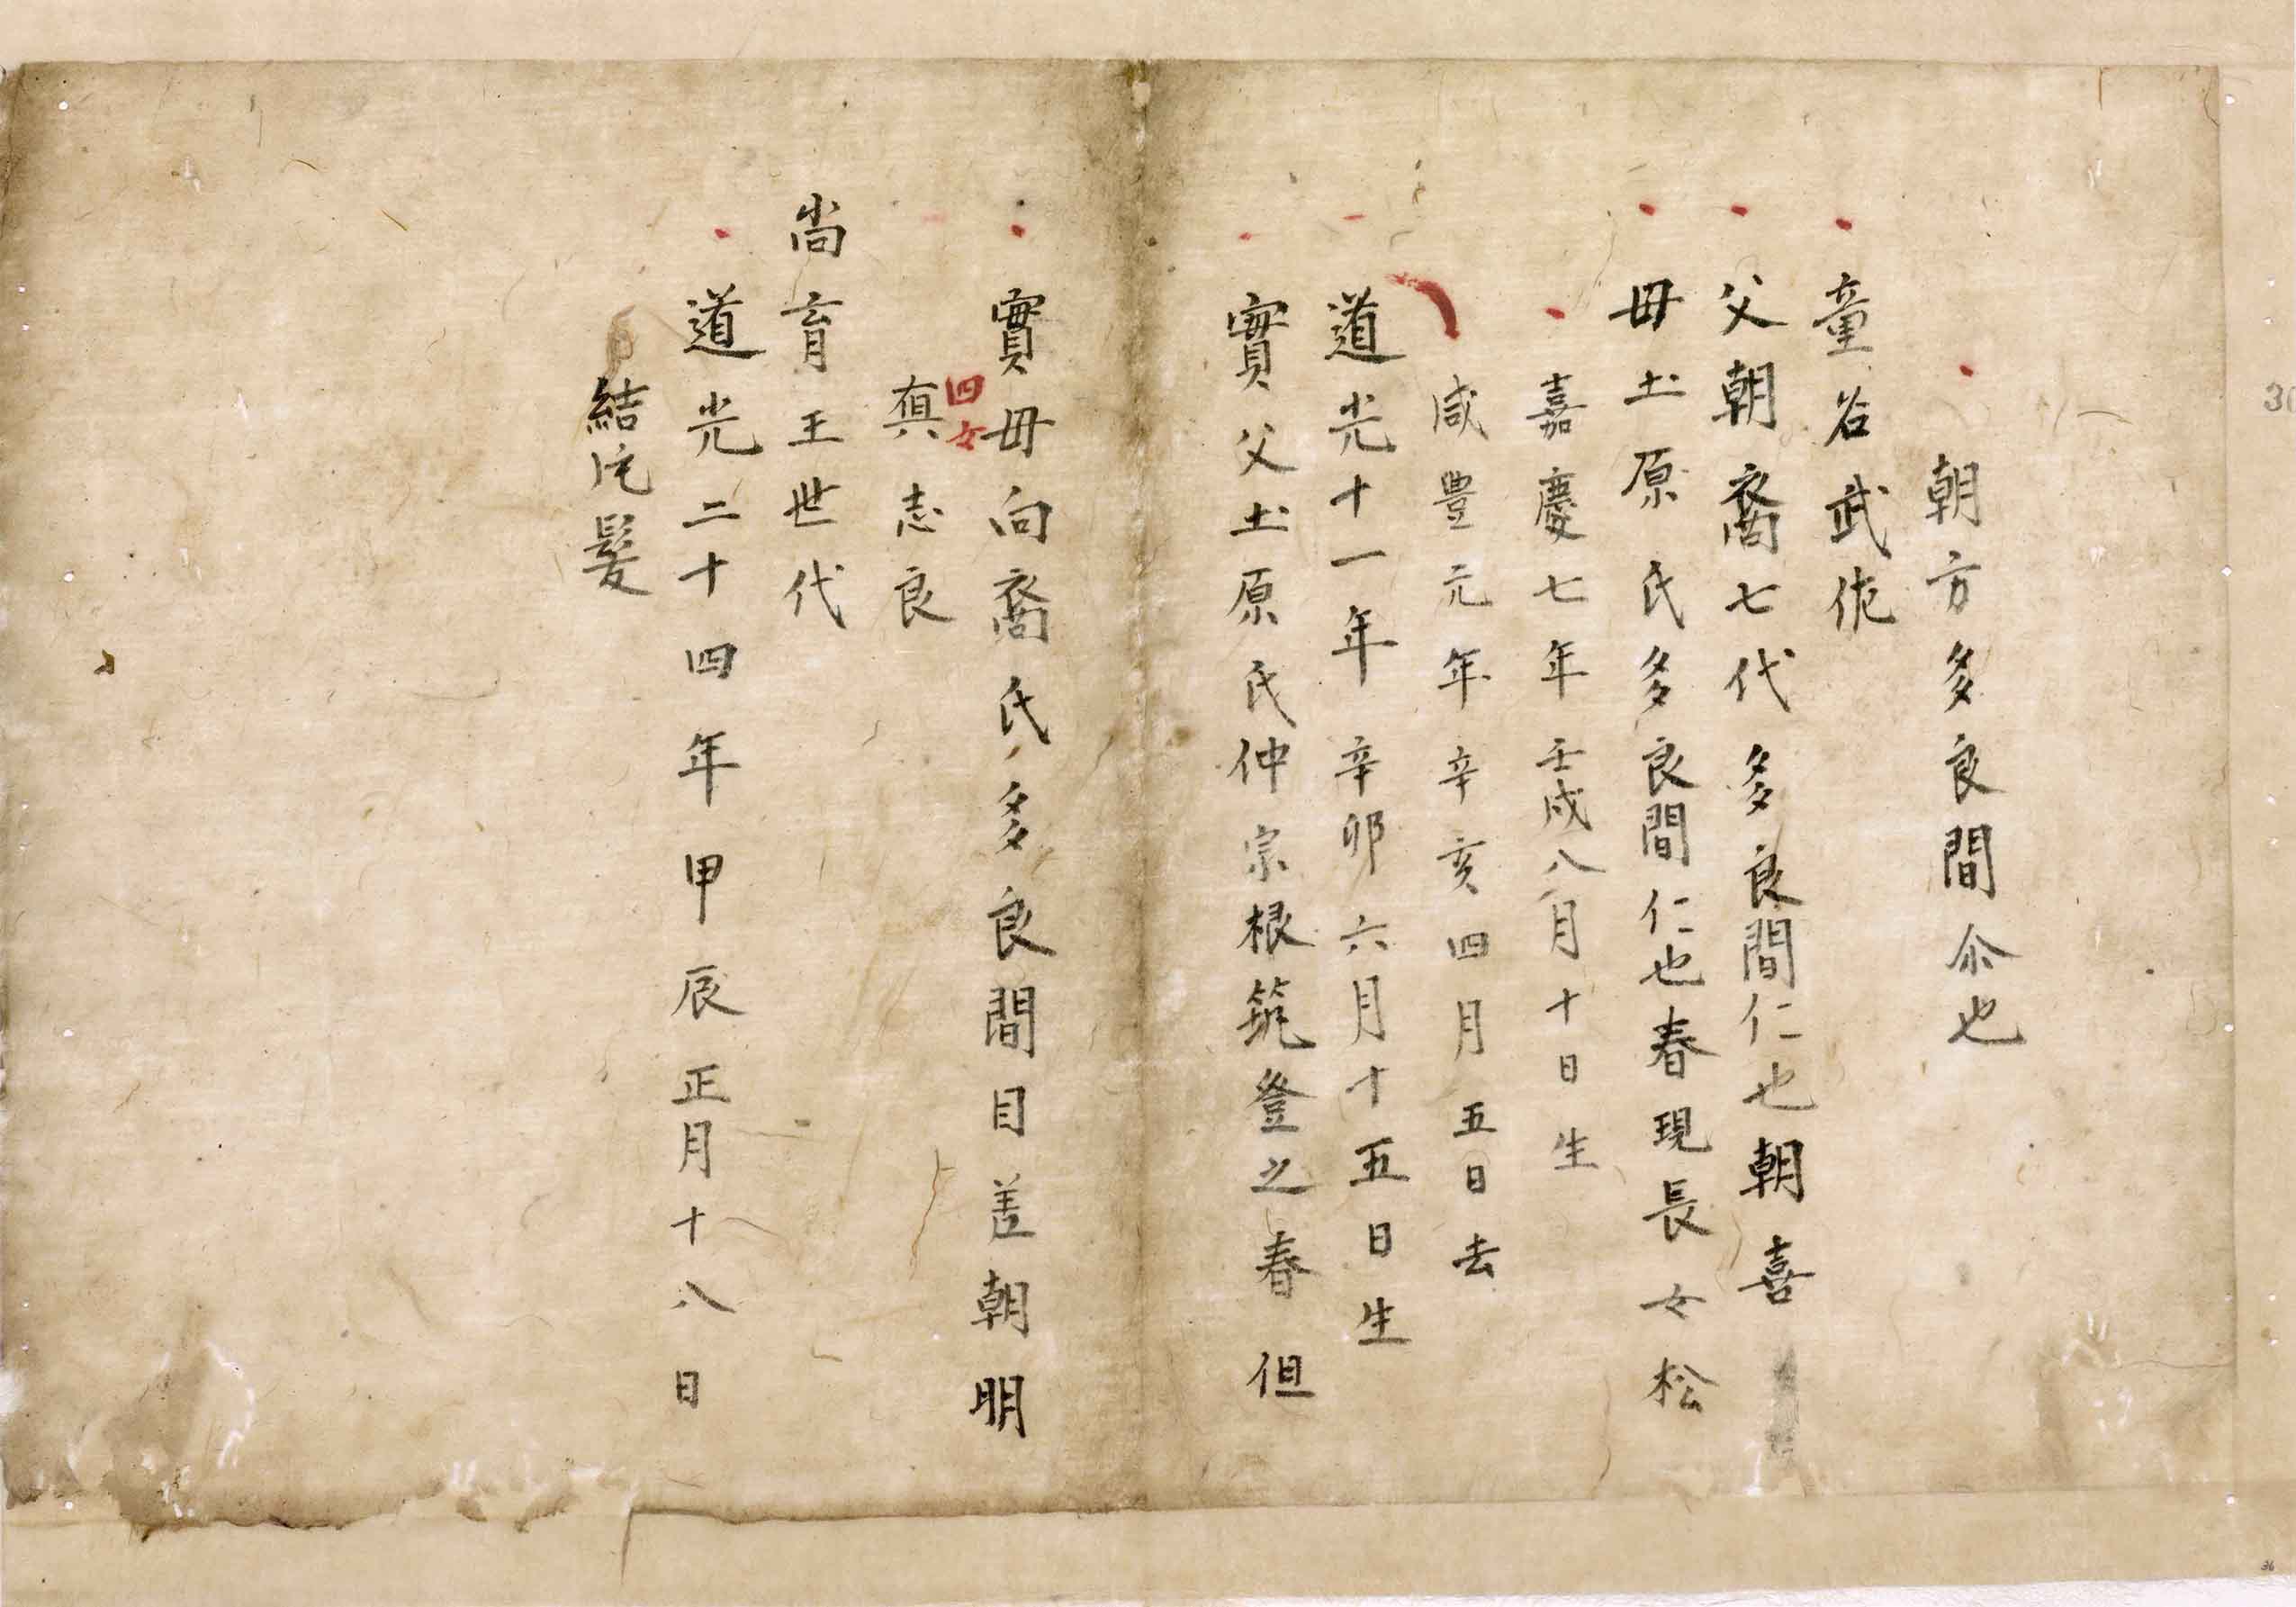 朝方多良間尒也
童名武佐
父朝裔七代多良間仁也朝喜
母土原氏多良間仁也春現長女松
嘉慶七年壬戌八月十日生
咸豊元年辛亥四月五日去
道光十一年辛卯六月十五日生
實父土原氏仲宗根筑登之春但
實母向裔氏多良間目差朝明
四女
真志良
尚育王世代
道光二十四年甲辰正月十八日
結片髪
36